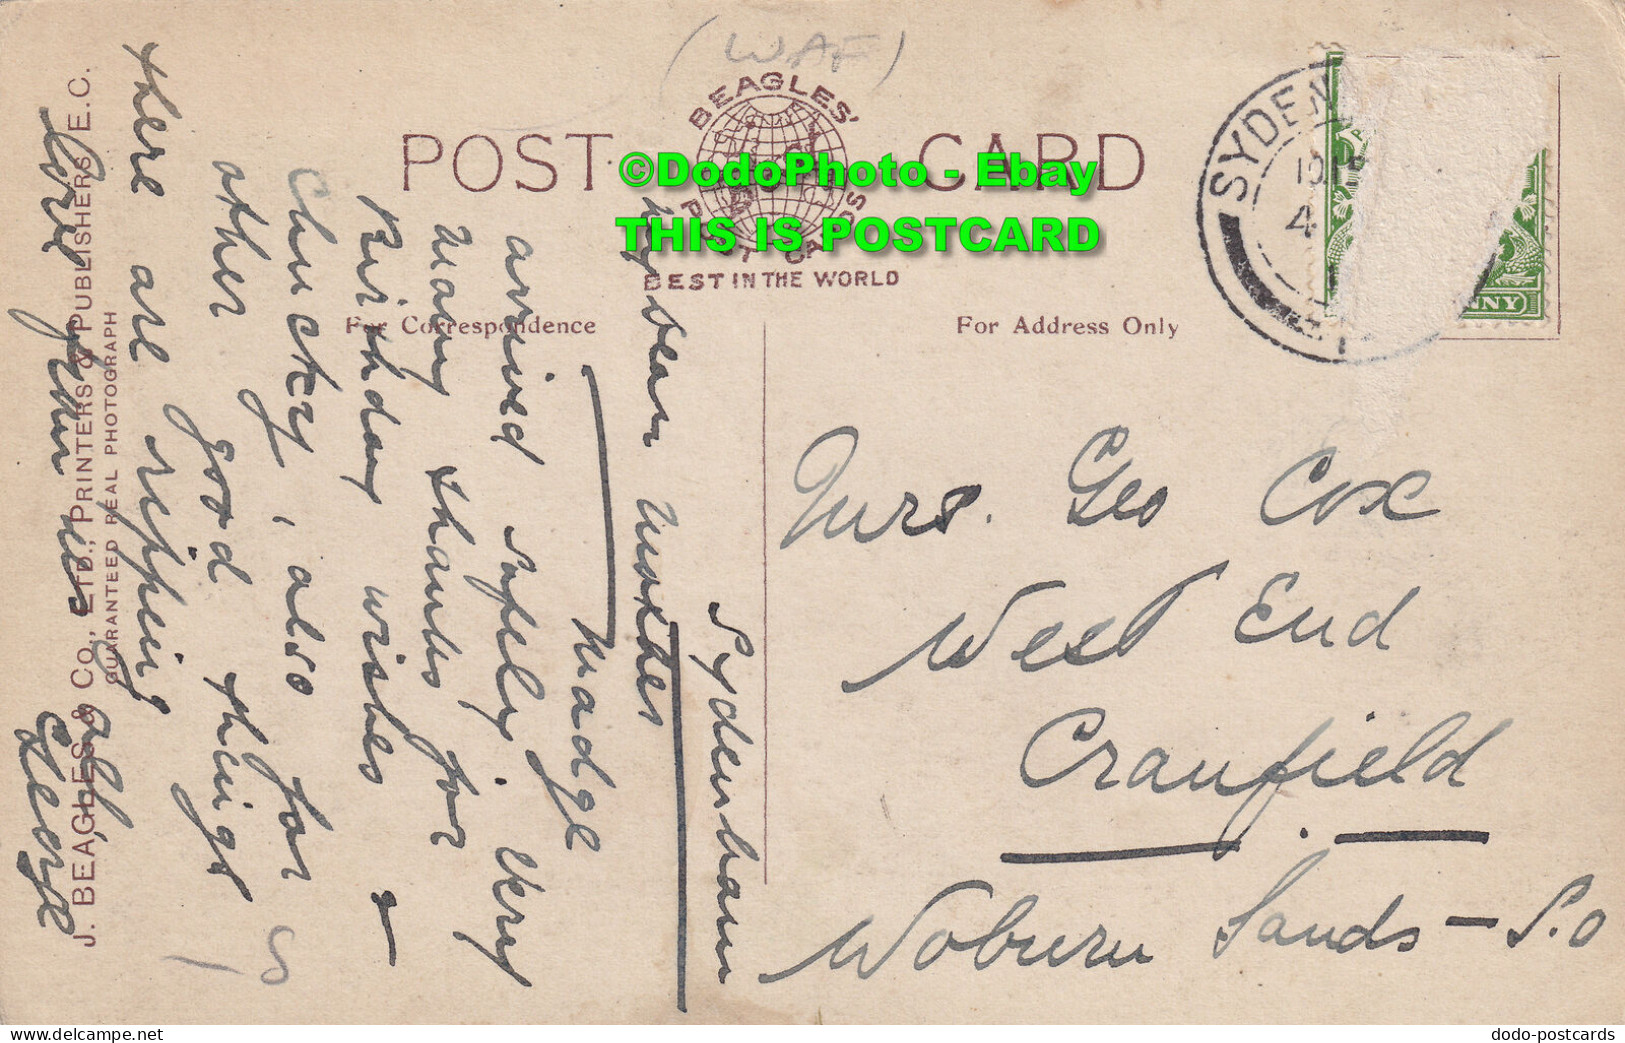 (WAF)
BEAGLES'
POST CARDS
BEST IN THE WORLD
POST CARD
©DodoPhoto - Ebay
THIS IS POSTCARD
For Correspondence
For Address Only
SYDEN
4
NNY
Sydenham
My dear Mother
Madge
arrived safely. Very
Many thanks for
Birthday wishes &
Chuckey, also for
other good things
there are ripping
Love from us all,
George
Mrs. Geo Cox
West End
Cranfield
Woburn Sands - S.O
J. BEAGLES & CO., LTD., PRINTERS & PUBLISHERS, E.C.
GUARANTEED REAL PHOTOGRAPH
www.delcampe.net
dodo-postcards